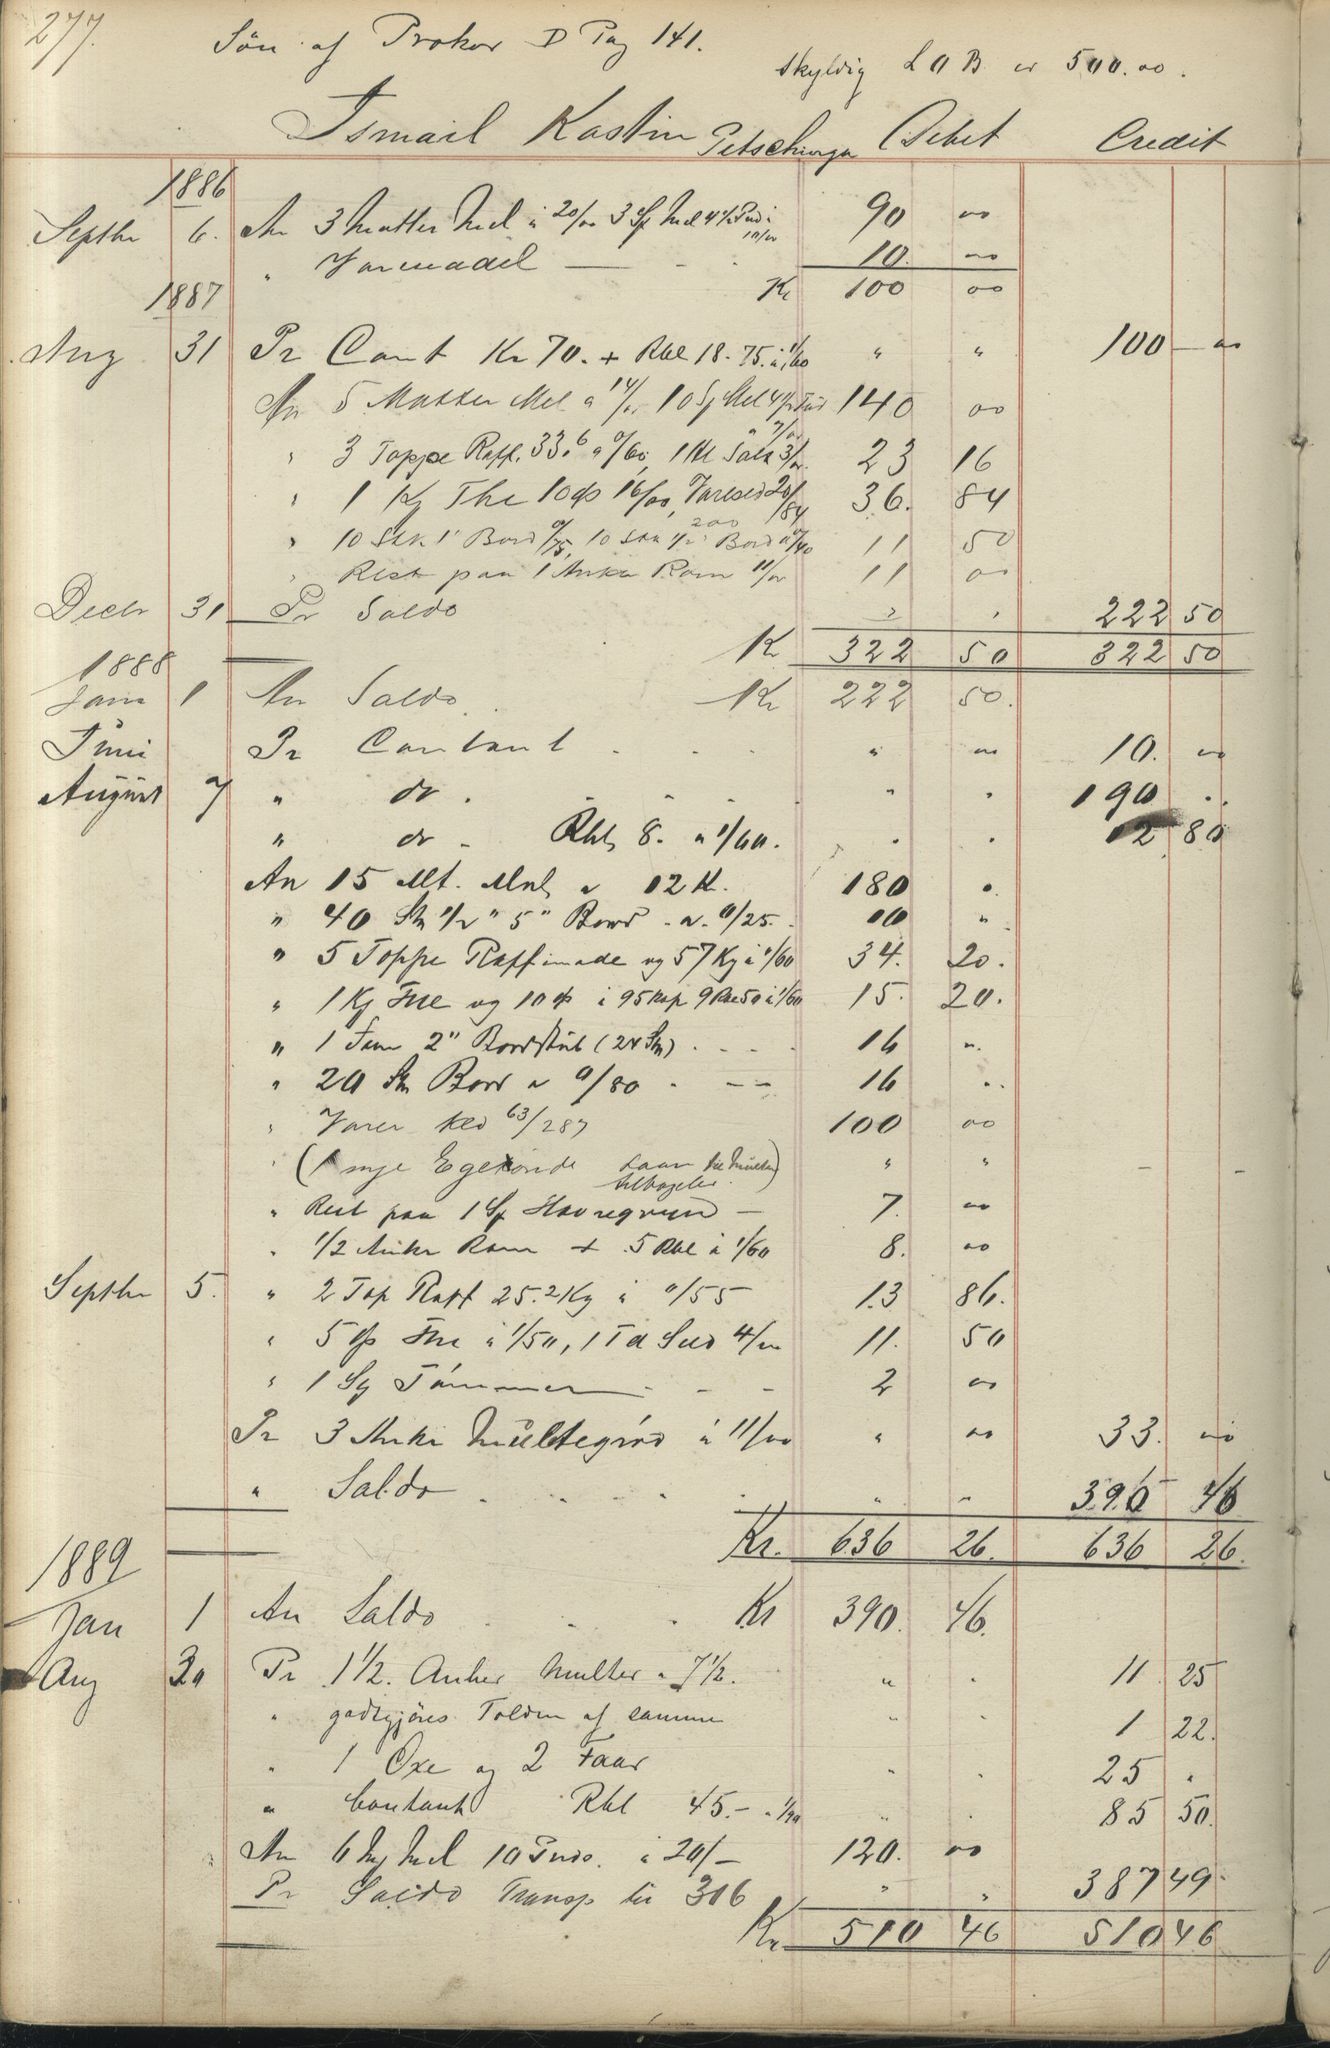 277.
Søn af Prokor D Pag 141.
skyldig L O B er 500.00.
Ismail Kostin Petschinga Debet Credit
1886
Septbr 6. An 3 Matter Mel à 20/00 3 Sæ Mel 4½ Pud à 10/00 90 00
" Varmadel — 10. 00
Kr 100 00
1887
Aug 31 Pr Cont Kr 70. + Rbl 18.75. à 1/60 " " 100 — 00
An 5 Matter Mel à 14/00 10 Sæ Mel 4½ Pud à 7/00 140 00
" 3 Toppe Raff. 33.6 à 0/60, 1 Hl Salt 3/00. 23 16
" 1 Kg The 10 ℔ 16/00, Varesed 20/84 36. 84
" 10 Stk 1" Bord 0/75, 10 Stk ½" Bord à 0/40 11 50
" Rest paa 1 Anker Rom 11/00 11 00
Decbr 31 Pr Saldo " " 222 50
Kr 322 50 322 50
1888
Janr 1 An Saldo. Kr 222 50.
Juni Pr Contant " " 10. 00
August 7 " do. " " 190 ..
" do - Rbl, 8. à 1/60. " " 12 80
An 15 Mt. Mel, à 12 K. 180 "
" 40 Stk ½ " 5" Bord à 0/25. 10 "
" 5 Toppe Raffinade og 57 Kg à 0/60 34. 20.
" 1 Kg The og 10 ℔ à 95 Kop 9 Rbl 50 à 1/60 15. 20.
" 1 Favn 2" Bordstub (24 Stk) 16 "
" 20 Stk Bord à 0/80 16 ..
" Varer Ked 63/287 100 00
" (1 nye Egetønde Laan til Multer tilbagelev.) " "
" Rest paa 1 Sæ Havregryn — 7. 00
" 1/2 Anker Rom + 5 Rbl à 1/60 8. 00
Septbr 5. " 2 Top Raff 25.2 Kg à 0/55 13 86.
" 5 ℔ The à 1/50, 1 Td Sild 4/00 11. 50
" 1 Sty Tømmer 2 00
Pr 3 Anker Multegrød à 11/00 " 00 33. 00
" Saldo " " 390 46
Kr. 636 26. 636 26.
1889
Jan 1 An Saldo Kr 390. 46.
Aug 30 Pr 1 1/2. Anker Multer à 7 1/2. " " 11 25
" godtgjøres Tolden af samme " " 1 22.
" 1 Oxe og 2 Faar " " 25 "
" Contant Rbl 45.— à 1/90 " " 85 50.
An 6 Mt Mel 10 Puds. à 20/— 120. 00
Pr Saldo Transp til 306 " " 387 49.
Kr 510 46 510 46